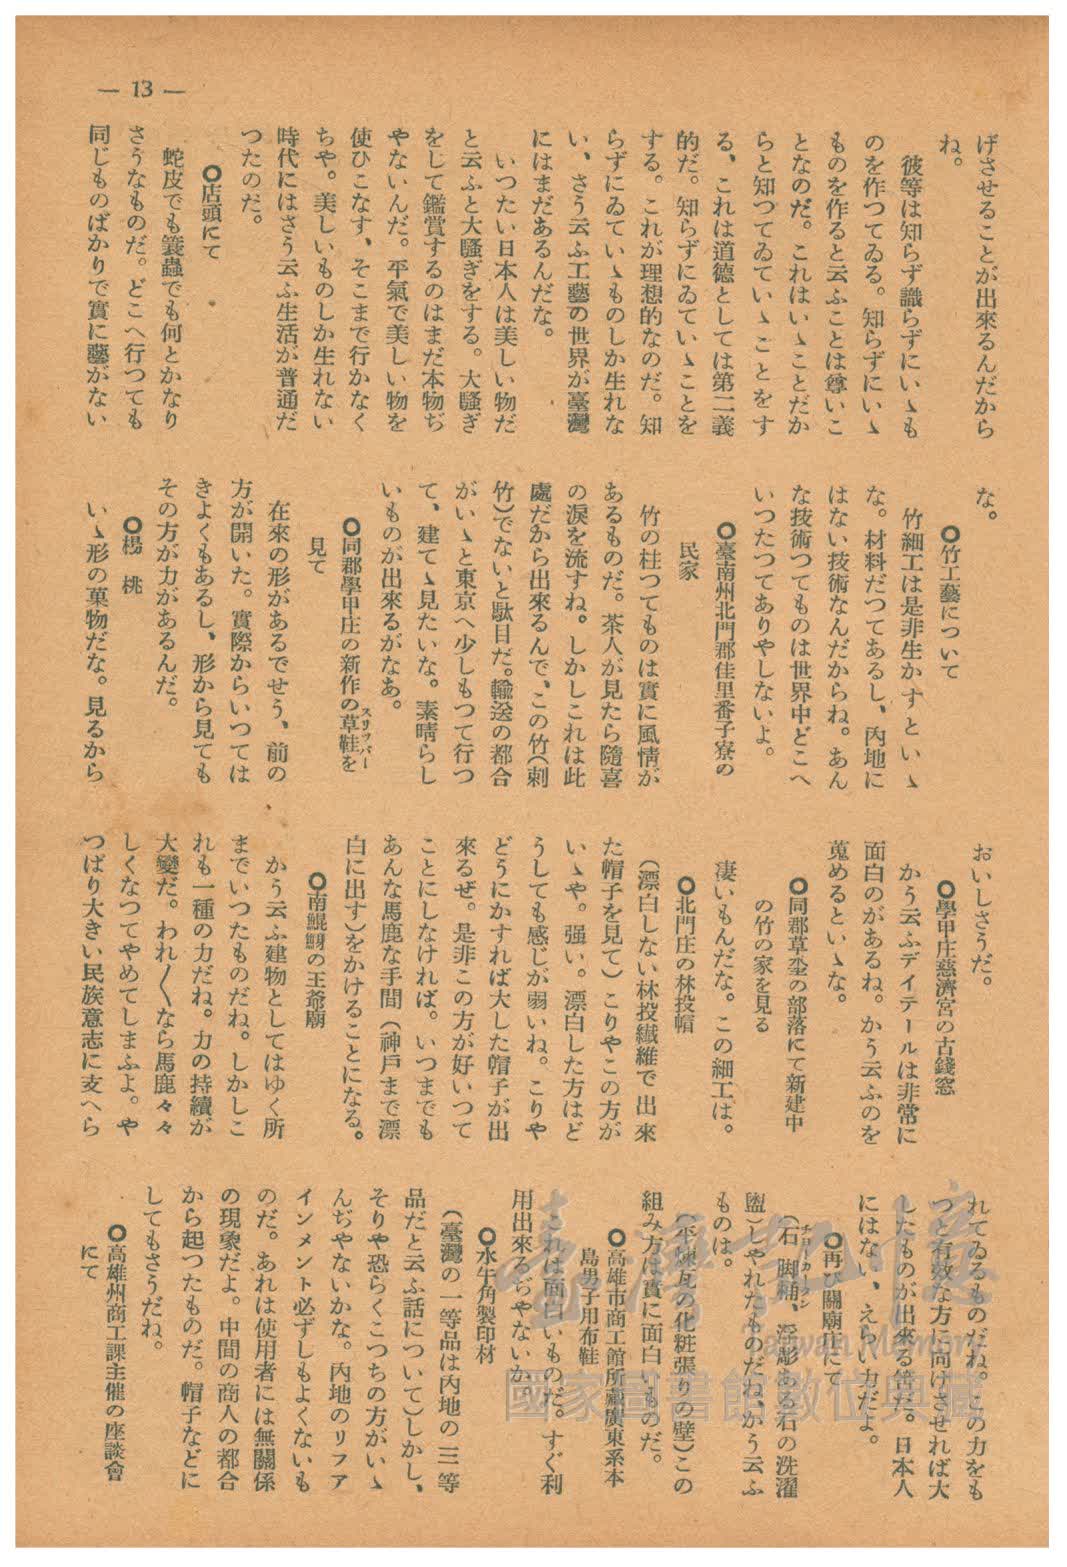 — 13 —
げさせることが出來るんだから
ね。
彼等は知らず識らずにいゝも
のを作つてゐる。知らずにいゝ
ものを作ると云ふことは尊いこ
となのだ。これはいゝことだか
らと知つてゐていゝことをす
る、これは道德としては第二義
的だ。知らずにゐていゝことを
する。これが理想的なのだ。知
らずにゐていゝものしか生れな
い、さう云ふ工藝の世界が臺灣
にはまだあるんだな。
いつたい日本人は美しい物だ
と云ふと大騷ぎをする。大騷ぎ
をして鑑賞するのはまだ本物ぢ
やないんだ。平氣で美しい物を
使ひこなす、そこまで行かなく
ちや。美しいものしか生れない
時代にはさう云ふ生活が普通だ
つたのだ。
○店頭にて
蛇皮でも簑蟲でも何とかなり
さうなものだ。どこへ行つても
同じものばかりで實に藝がない
な。
○竹工藝について
竹細工は是非生かすといゝ
な。材料だつてあるし、內地に
はない技術なんだからね。あん
な技術つてものは世界中どこへ
いつたつてありやしないよ。
○臺南州北門郡佳里番子寮の
民家
竹の柱つてものは實に風情が
あるものだ。茶人が見たら隨喜
の淚を流すね。しかしこれは此
處だから出來るんで、この竹(刺
竹)でないと駄目だ。輸送の都合
がいゝと東京へ少しもつて行つ
て、建てゝ見たいな。素晴らし
いものが出來るがなあ。
○同郡學甲庄の新作の草鞋スリッパーを
見て
在來の形があるでせう、前の
方が開いた。實際からいつては
きよくもあるし、形から見ても
その方が力があるんだ。
○楊 桃
いゝ形の菓物だな。見るから
おいしさうだ。
○學甲庄慈濟宮の古錢窓
かう云ふデイテールは非常に
面白のがあるね。かう云ふのを
蒐めるといゝな。
○同郡草坔の部落にて新建中
の竹の家を見る
凄いもんだな。この細工は。
○北門庄の林投帽
(漂白しない林投纖維で出來
た帽子を見て)こりやこの方が
いゝや。强い。漂白した方はど
うしても感じが弱いね。こりや
どうにかすれば大した帽子が出
來るぜ。是非この方が好いつて
ことにしなければ。いつまでも
あんな馬鹿な手間(神戶まで漂
白に出す)をかけることになる。
○南鯤鯓の王爺廟
かう云ふ建物としてはゆく所
までいつたものだね。しかしこ
れも一種の力だね。力の持續が
大變だ。われ〱なら馬鹿々々
しくなつてやめてしまふよ。や
つぱり大きい民族意志に支へら
れてゐるものだね。この力をも
つと有效な方に向けさせれば大
したものが出來る筈だ。日本人
にはない、えらい力だよ。
○再び關廟庄にて
(石脚桶チヨーカータン、浮彫ある石の洗濯
盥)しやれたものだね、かう云ふ
ものは。
(平煉瓦の化粧張りの壁)この
組み方は實に面白いものだ。
○高雄市商工館所藏廣東系本
島男子用布鞋
これは面白いものだ。すぐ利
用出來るぢやないか。
○水牛角製印材
(臺灣の一等品は內地の三等
品だと云ふ話について)しかし、
そりや恐らくこつちの方がいゝ
んぢやないかな。內地のリフア
インメント必ずしもよくないも
のだ。あれは使用者には無關係
の現象だよ。中間の商人の都合
から起つたものだ。帽子などに
してもさうだね。
○高雄州商工課主催の座談會
にて
臺灣記憶
Taiwan Memory
國家圖書館數位典藏